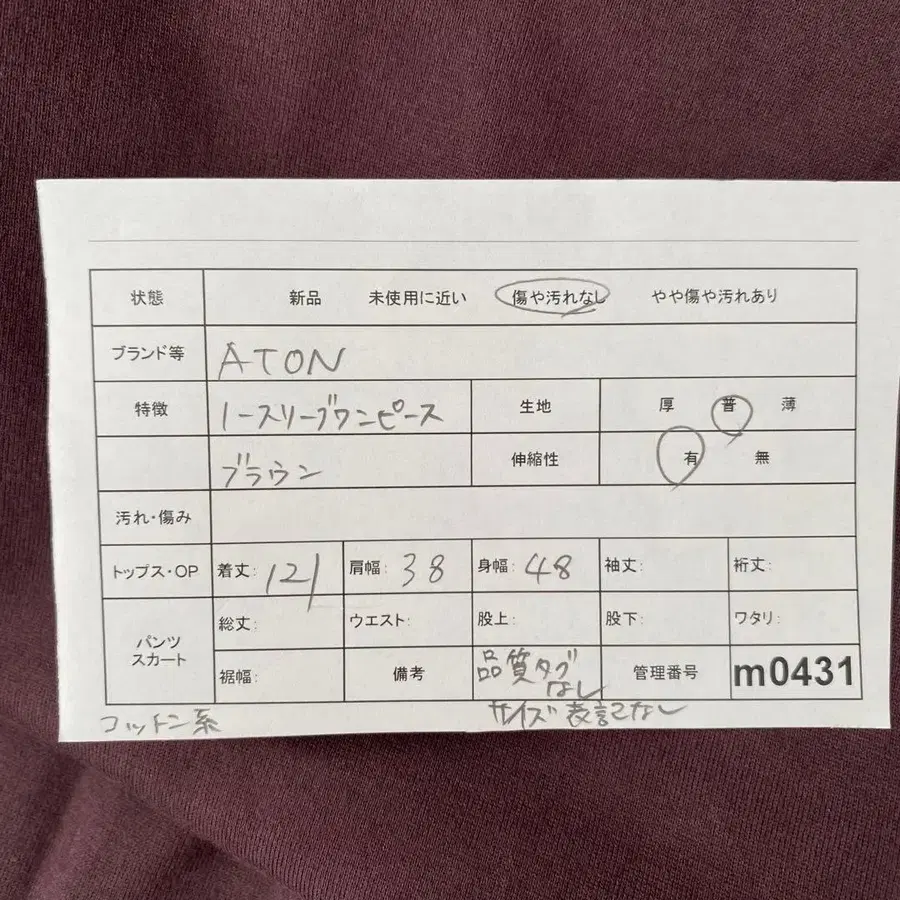 状態 新品 未使用に近い 傷や汚れなし やや傷や汚れあり
ブランド等 ATON
特徴 ノースリーブワンピース 生地 厚 普 薄
ブラウン 伸縮性 有 無
汚れ・傷み
トップス・OP 着丈: 121 肩幅: 38 身幅: 48 袖丈: 裄丈:
パンツ スカート 総丈: ウエスト: 股上: 股下: ワタリ:
裾幅: 備考 品質タグ なし 管理番号 m0431
コットン系 サイズ表記なし